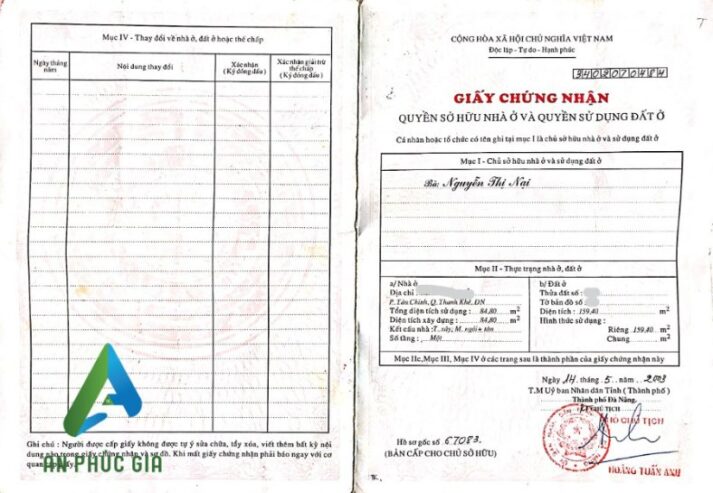 Mục IV - Thay đổi về nhà ở, đất ở hoặc thế chấp
Ngày tháng năm
Nội dung thay đổi
Xác nhận (Ký đóng dấu)
Xác nhận giải trừ thế chấp (Ký đóng dấu)
Ghi chú : Người được cấp giấy không được tự ý sửa chữa, tẩy xóa, viết thêm bất kỳ nội
dung nào trong giấy chứng nhận và sơ đồ. Khi mất giấy chứng nhận phải báo ngay với cơ
quan cấp giấy.
AN PHÚC GIA
CỘNG HÒA XÃ HỘI CHỦ NGHĨA VIỆT NAM
Độc lập - Tự do - Hạnh phúc
3402070484
GIẤY CHỨNG NHẬN
QUYỀN SỞ HỮU NHÀ Ở VÀ QUYỀN SỬ DỤNG ĐẤT Ở
Cá nhân hoặc tổ chức có tên ghi tại mục I là chủ sở hữu nhà ở và sử dụng đất ở
Mục I - Chủ sở hữu nhà ở và sử dụng đất ở
Bà: Nguyễn Thị Nại
Mục II - Thực trạng nhà ở, đất ở
a/ Nhà ở
Địa chỉ :
P. Tân Chính, Q. Thanh Khê, ĐN
Tổng diện tích sử dụng : 84,80 m2
Diện tích xây dựng : 84,80 m2
Kết cấu nhà : T. xây, M. ngói + tôn
Số tầng : Một
b/ Đất ở
Thửa đất số :
Tờ bản đồ số :
Diện tích : 159,40 m2
Hình thức sử dụng :
Riêng 159,40 m2
Chung m2
Mục IIc, Mục III, Mục IV ở các trang sau là thành phần của giấy chứng nhận này
Ngày 14 tháng 5 năm 2003
T.M Uỷ ban Nhân dân Tỉnh ( Thành phố )
Thành phố Đà Nẵng
CHỦ TỊCH
PHÓ CHỦ TỊCH
HOÀNG TUẤN ANH
Hồ sơ gốc số 67083.
(BẢN CẤP CHO CHỦ SỞ HỮU)